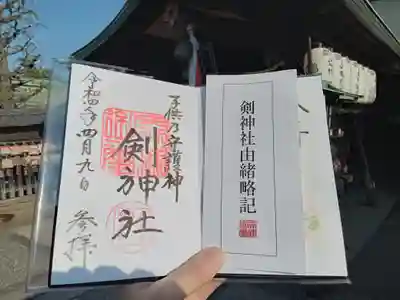 子供乃守護神
剣神社
令和四年四月九日
参拝
剣神社由緒略記